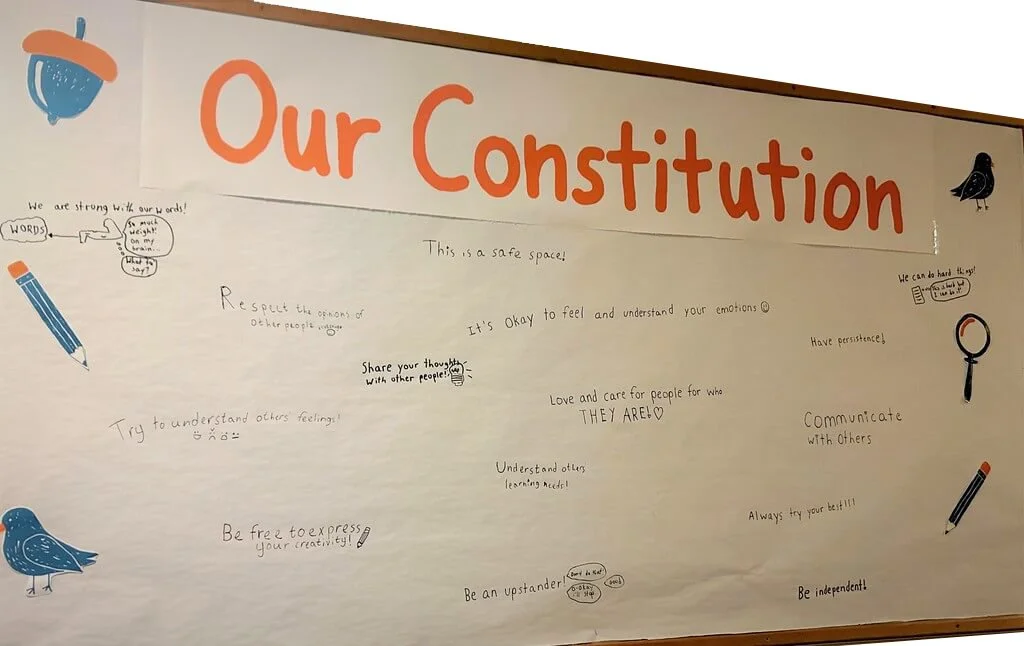 Our Constitution
We are strong with our words!
WORDS
So much
weight
on my
brain...
What to
say?
This is a safe space!
We can do hard things!
This is hard but
I can do it!
Respect the opinions of
other people
It's okay to feel and understand your emotions
Have persistence!
Share your thoughts
with other people!
Love and care for people for who
THEY ARE!
Try to understand others' feelings!
Communicate
with others
Understand others
learning needs!
Always try your best!!!
Be free to express
your creativity!
Be an upstander!
Don't do that!
O-okay
I'll stop
Good
Be independent!